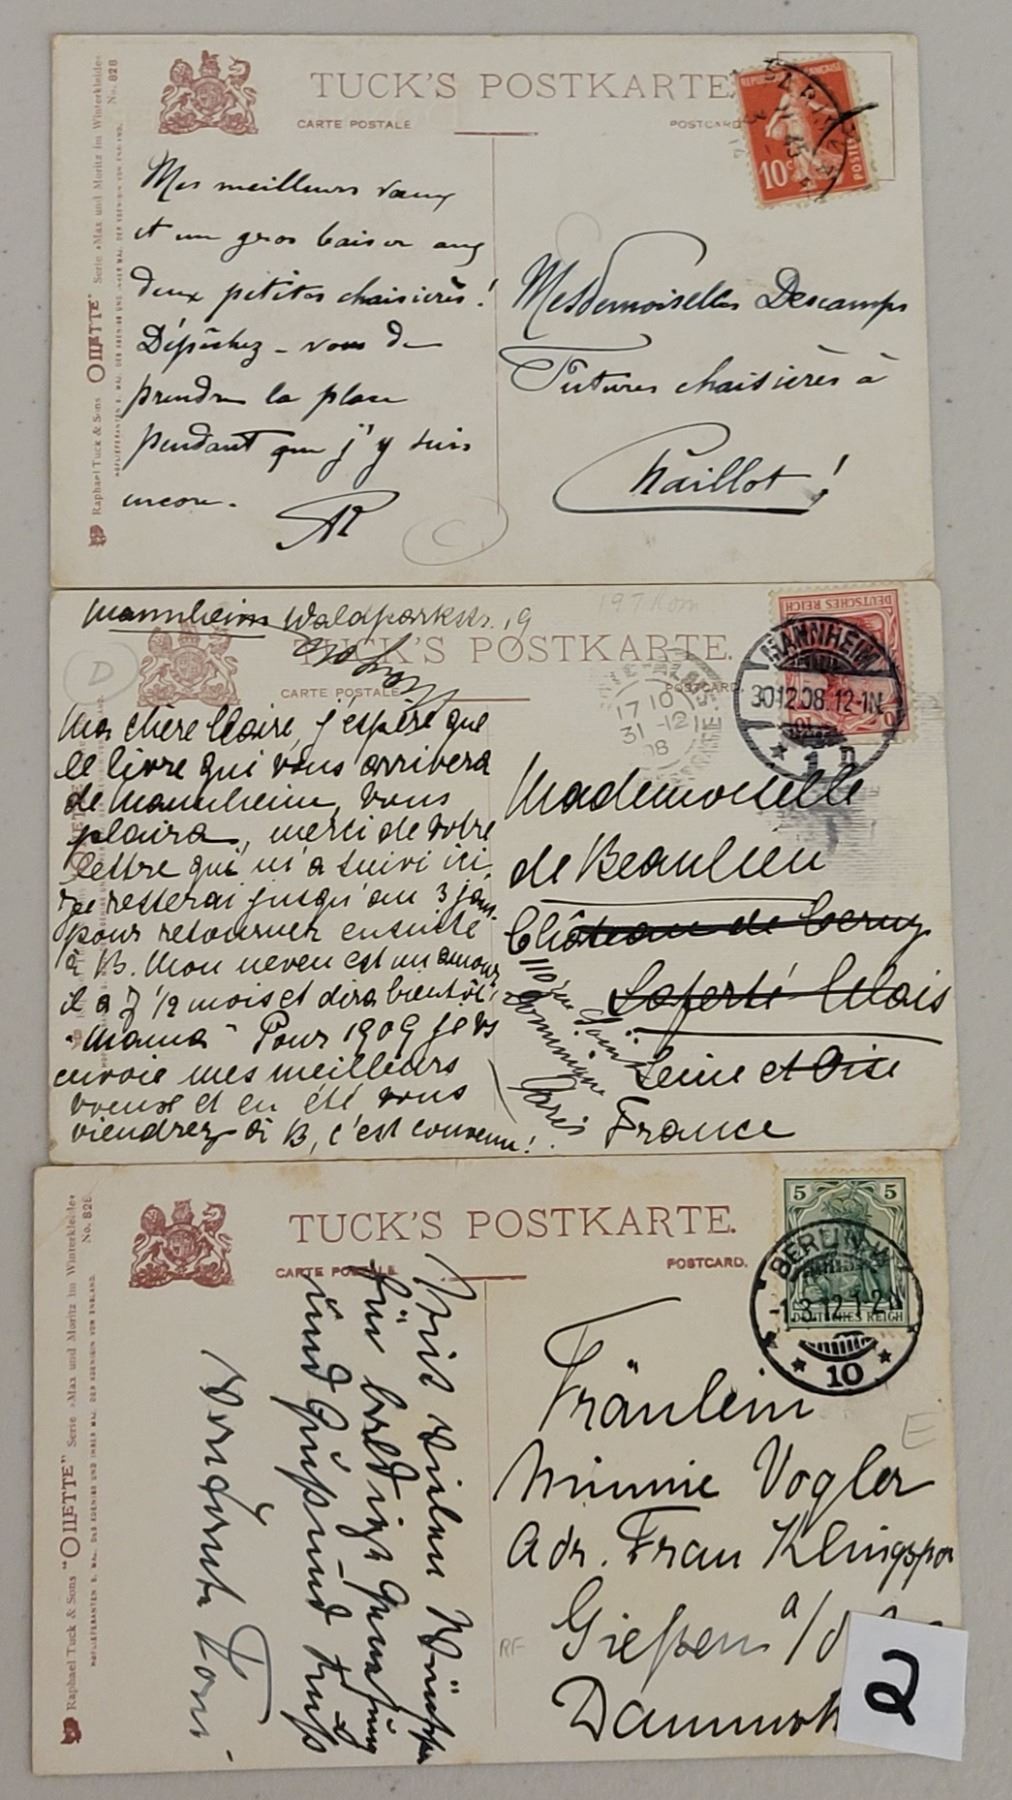 TUCK'S POSTKARTE.
CARTE POSTALE
POSTCARD
REPUBLIQUE FRANÇAISE
10c
POSTES
Raphael Tuck & Sons "OILETTE" Serie »Max und Moritz im Winterkleide«
No. 828
Mes meilleurs vœux
et un gros baiser aux
deux petites chaisières!
Dépêchez-vous de
prendre la place
pendant que j'y suis
encore.
AR
C
Mesdemoiselles Descamps
Futures chaisières à
Chaillot!
Mannheim Waldparkstr. 19
TUCK'S POSTKARTE.
CARTE POSTALE
POSTCARD.
D
DEUTSCHES REICH
10
MANNHEIM
30.12.08.12-1N.
* 1 n
17 10
31 -12
08
Ma chère Claire, j'espère que
le livre qui vous arrivera
de Mannheim, vous
plaira, merci de votre
lettre qui m'a suivi ici.
Je resterai jusqu'au 3 jan.
pour retourner ensuite
à B. Mon neveu est un amour
il a 7 1/2 mois et dira bientôt
"Mama" Pour 1909 je vs
envoie mes meilleurs
voeux et en été vous
viendrez à B, c'est convenu!
Mademoiselle
de Beaulieu
Château de Cerny
Laferté Alais
Seine et Oise
France
110 rue Saint
Dominique
Paris
TUCK'S POSTKARTE.
CARTE POSTALE
POSTCARD.
Raphael Tuck & Sons "OILETTE" Serie »Max und Moritz im Winterkleide«
No. 828
HOFLIEFERANTEN S. MAJ. DES KOENIGS UND IHRER MAJ. DER KOENIGIN VON ENGLAND.
5 5
DEUTSCHES REICH
BERLIN.W
-1.3.12.1-2N
* 10 *
Mit vielen Wünschen
für baldige Genesung
und Gruß und Kuß
von
Toni.
Fräulein
Minnie Vogler
Adr. Frau Klingspor
Gießen a/d
E
RF
2